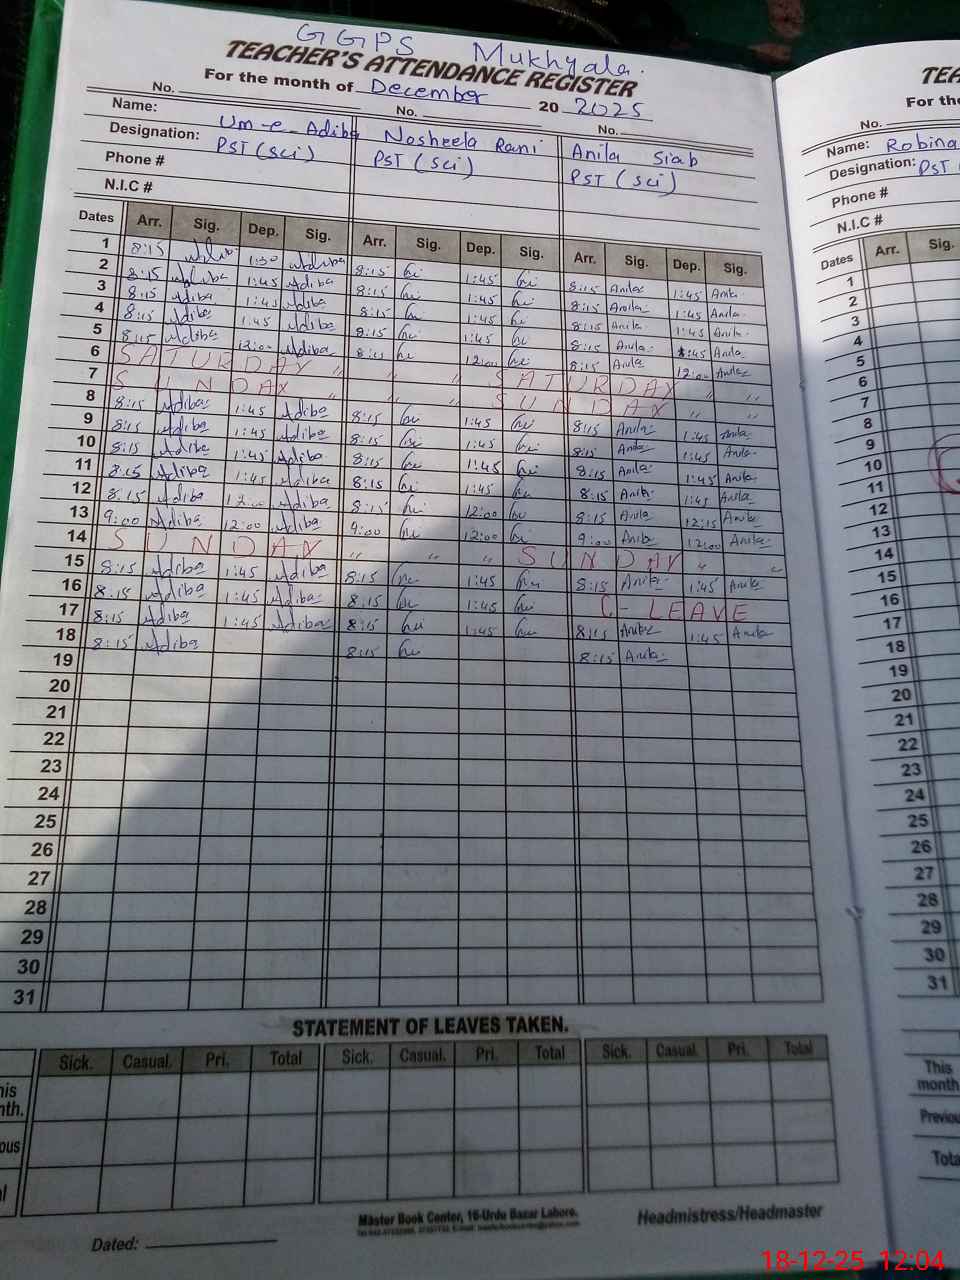 GGPS Mukhyala.
TEACHER'S ATTENDANCE REGISTER
For the month of December 20 2025
No. No. No.
Name: Um-e-Adiba Nosheela Rani Anila Siab
Designation: PST (sci) PST (sci) PST (sci)
Phone #
N.I.C #
Dates Arr. Sig. Dep. Sig. Arr. Sig. Dep. Sig. Arr. Sig. Dep. Sig.
1 8:15 1:30 Adiba 8:15 1:45 8:15 Anila 1:45 Anila
2 8:15 Adiba 1:45 Adiba 8:15 1:45 8:15 Anila 1:45 Anila
3 8:15 Adiba 1:45 Adiba 8:15 1:45 8:15 Anila 1:45 Anila
4 8:15 Adiba 1:45 Adiba 8:15 1:45 8:15 Anila 1:45 Anila
5 8:15 Adiba 12:00 Adiba 12:00 8:15 Anila 12:00 Anila
6 SATURDAY " " " SATURDAY " "
7 SUNDAY " " " SUNDAY " "
8 8:15 Adiba 1:45 Adiba 8:15 1:45 8:15 Anila 1:45 Anila
9 8:15 Adiba 1:45 Adiba 8:15 1:45 8:15 Anila 1:45 Anila
10 8:15 Adiba 1:45 Adiba 8:15 1:45 8:15 Anila 1:45 Anila
11 8:15 Adiba 1:45 Adiba 8:15 1:45 8:15 Anila 1:45 Anila
12 8:15 Adiba 12:00 Adiba 8:15 12:00 8:15 Anila 12:15 Anila
13 9:00 Adiba 12:00 Adiba 9:00 12:00 9:00 Anila 12:00 Anila
14 SUNDAY " " " SUNDAY " "
15 8:15 Adiba 1:45 Adiba 8:15 1:45 8:15 Anila 1:45 Anila
16 8:15 Adiba 1:45 Adiba 8:15 1:45 C-LEAVE
17 8:15 Adiba 1:45 Adiba 8:15 1:45 8:15 Anila 1:45 Anila
18 8:15 Adiba 8:15 8:15 Anila
19
20
21
22
23
24
25
26
27
28
29
30
31
STATEMENT OF LEAVES TAKEN.
Sick. Casual. Pri. Total Sick. Casual. Pri. Total Sick. Casual. Pri. Total
Master Book Center, 16-Urdu Bazar Lahore.
Dated: Headmistress/Headmaster
TEA
For the
No.
Name: Robina
Designation: PST
Phone #
N.I.C #
Dates Arr. Sig.
1
2
3
4
5
6
7
8
9
10
11
12
13
14
15
16
17
18
19
20
21
22
23
24
25
26
27
28
29
30
31
This
month
Previou
Tota
18-12-25 12:04